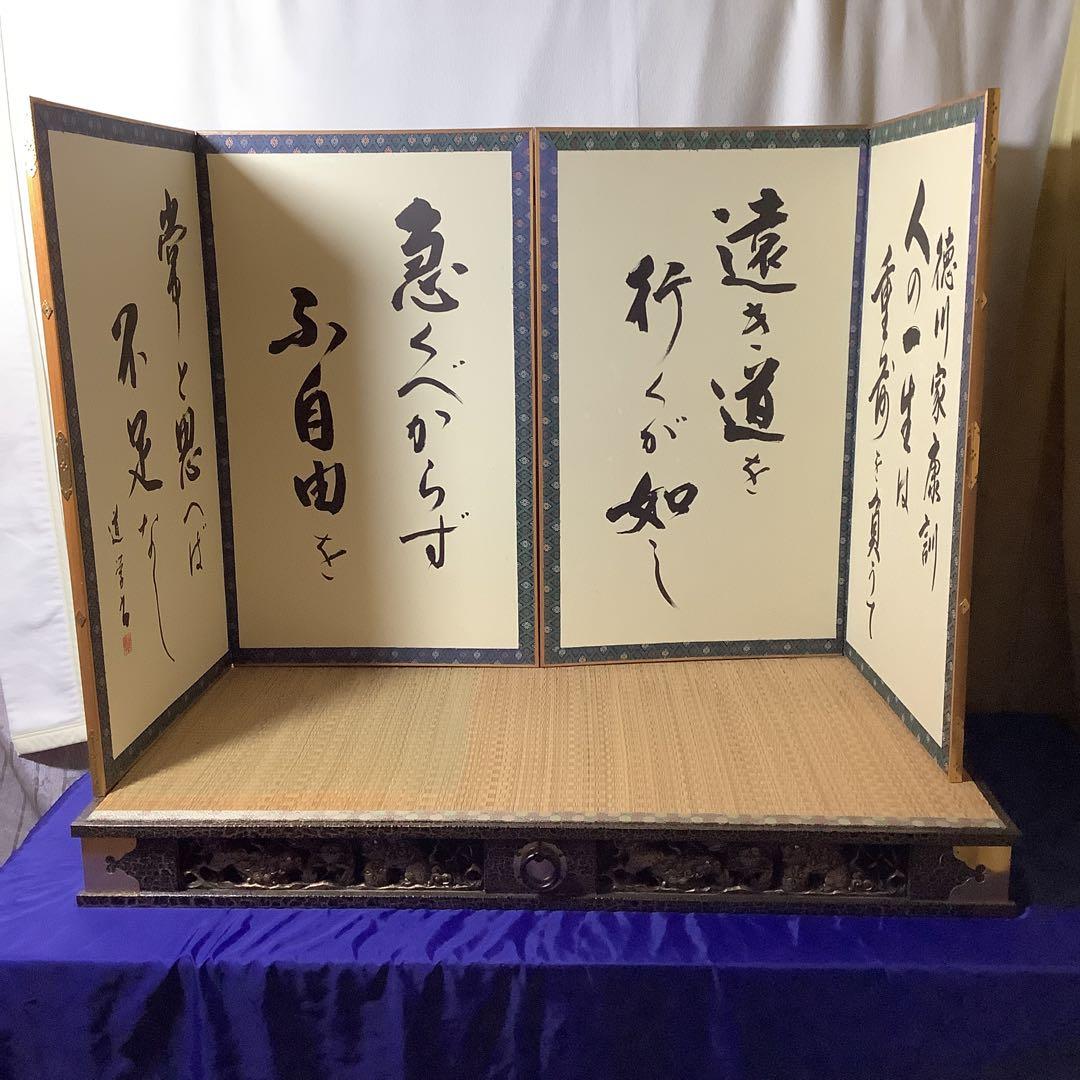 徳川家康訓
人の一生は
重荷を負うて
遠き道を
行くが如し
急くべからず
ふ自由を
常と思へば
不足なし